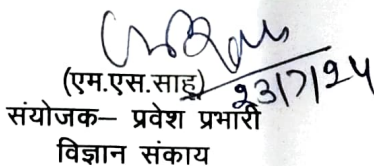 (एम.एस.साहू)
23/7/24
संयोजक– प्रवेश प्रभारी
विज्ञान संकाय